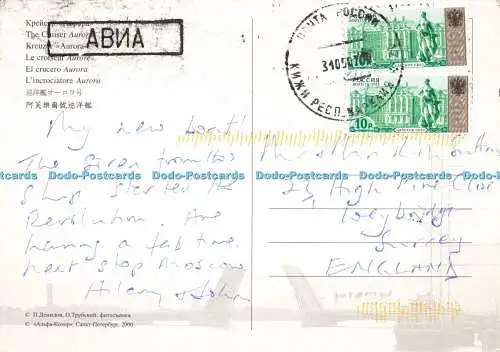 Крейсер «Аврора»
The Cruiser Aurora
АВИА
Kreuzer «Aurora»
Le croiseur Aurora
El crucero Aurora
L'incrociatore Aurora
巡洋艦オーロラ号
阿芙樂爾號巡洋艦
My new boat!
The siren from this
ship started the
Revolution. Are
having a fab time.
next stop Moscow
Hilary & John
© П.Демидов, О.Трубский, фотосъемка
© «Альфа-Колор», Санкт-Петербург, 2000
ПОЧТА РОССИИ
310507
КИЖИ РЕСП. КАРЕЛИЯ
РОССИЯ
10р
25 High Pine Close
Weybridge
Surrey
ENGLAND
Dodo-Postcards Dodo-Postcards Dodo-Postcards Dodo-Postcards